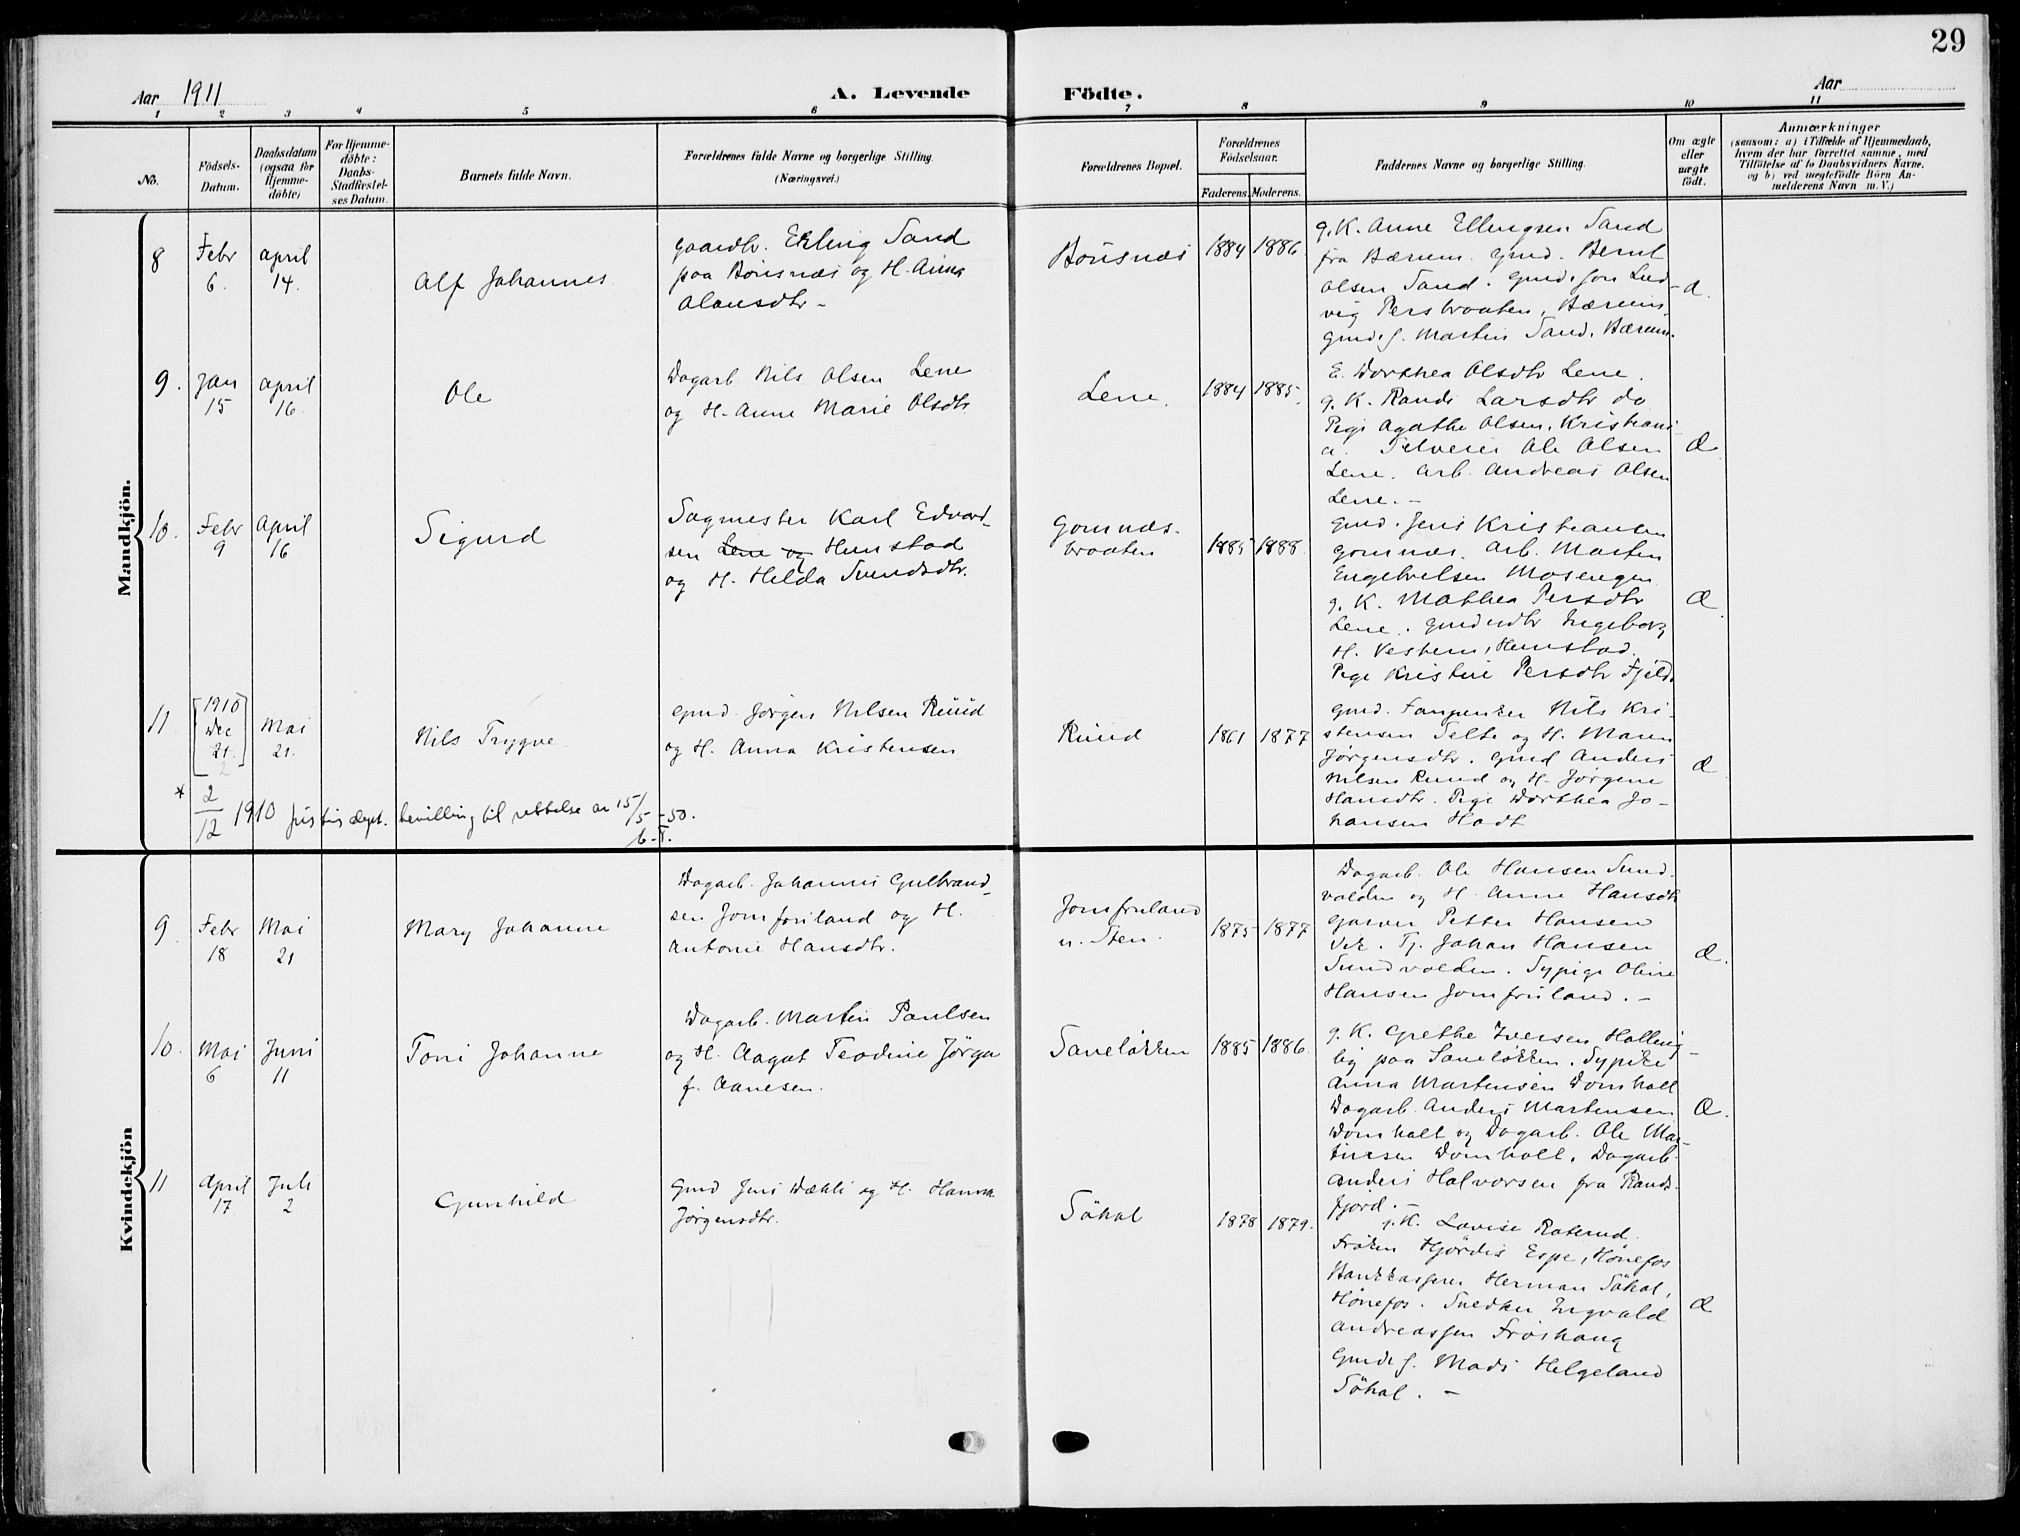 29
Aar 1911
A. Levende Födte.
Aar
1 2 3 4 5 6 7 8 9 10 11
No.
Födsels-
Datum.
Daabsdatum
(ogsaa for
Hjemme-
döbte)
For Hjemme-
döbte:
Daabs-
Stadfæstel-
ses Datum.
Barnets fulde Navn.
Forældrenes fulde Navne og borgerlige Stilling.
(Næringsvei.)
Forældrenes Bopæl.
Forældrenes
Födselsaar.
Faderens. Moderens.
Faddernes Navne og borgerlige Stilling.
Om ægte
eller
uægte
födt.
Anmærkninger
(saasom: a) i Tilfælde af Hjemmedaab,
hvem der har forrettet samme, med
Tilföielse af to Daabsvidners Navne,
og b) ved uægtefödte Börn An-
melderens Navn m. V.)
Mandkjön.
8
Febr
6.
april
14.
Alf Johannes
gaardbr. Erling Sand
paa Bönsnæs og H. Anna
Olausdtr -
Bönsnæs
1884 1886.
g. K. Anne Ellingsen Sand
fra Bærum. gmd. Bernt
Olsen Sand. gmds søn Lud-
vig Persbraaten, Bærum,
gmds s. Martin Sand, Bærum.
Æ.
9.
Jan
15
april
16.
Ole
Dagarb Nils Olsen Lene
og H. Anne Marie Olsdtr
Lene.
1884 1885.
E. Dorthea Olsdtr Lene.
g. K. Randi Larsdtr do
Pige Agathe Olsen, Kristiani-
a. Selveier Ole Olsen
Lene. arb. Andreas Olsen
Lene. -
Æ
10.
Febr
9
April
16
Sigurd
Sagmester Karl Edvard-
sen Lene og Hemstad
og H. Helda Svendsdtr.
Gomnæs-
braaten
1885 1888.
gmd. Jens Kristiansen
Gomnæs. Arb. Martin
Engebretsen Mosengen
g. K. Mathea Persdtr
Lene. gmd dtr Ingeborg
H. Vestern, Hemstad.
Pige Kristine Persdtr Fjeld.
Æ
11.
[1910
Dec
21.]
Mai
21.
Nils Trygve.
gmd. Jørgen Nilsen Rüüd
og H. Anna Kristensen
Rüüd
1861 1877
gmd. Nils Kri-
stensen Selte og H. Maren
Jørgensdtr. gmd Anders
Nilsen Ruud og H. Jørgine
Hansdtr. Pige Dorthea Jo-
hansen Hodt
Æ
* 2/12 1910 justisdept. bevilling til rettelse av 15/5 -50.
b-T.
Kvindekjön
9
Febr
18
Mai
21
Mary Johanne
Dagarb. Johannes Gulbrand-
sen Jomfruland og H.
Antonie Hansdtr.
Jomfruland
u. Sten.
1875 1877
Dagarb. Ole Hansen Sund-
volden og H. Anne Hansdtr
garver Petter Hansen
Vik. Tj. Johan Hansen
Sundvolden. Sypige Oline
Hansen Jomfruland. -
Æ.
10.
Mai
6
Juni
11
Toni Johanne
Dagarb. Martin Paulsen
og H. Aagot Teodine Jørga
f. Aanesen.
Saneløkken
1885 1886.
g. K. Grethe Iversen Halling-
by paa Saneløkken. Sypike
Anna Martinsen Domholt
Dagarb. Anders Martinsen
Domholt og Dagarb. Ole Mar-
tinsen Domholt. Dagarb.
Anders Halvorsen fra Rands-
fjord. -
Æ.
11
April
17.
Juli
2
Gunhild
Gmd Jens Dæhli og H. Hanna
Jørgensdtr.
Søhol
1878 1879.
g. K. Lovise Roterud.
Frøken Hjördis Espe, Hønefos
Bankkasserer Herman Søhol,
Hønefos. Snedker Ingvald
Andreassen Frøshaug
Gmds s. Mads Helgeland
Søhol. -
Æ